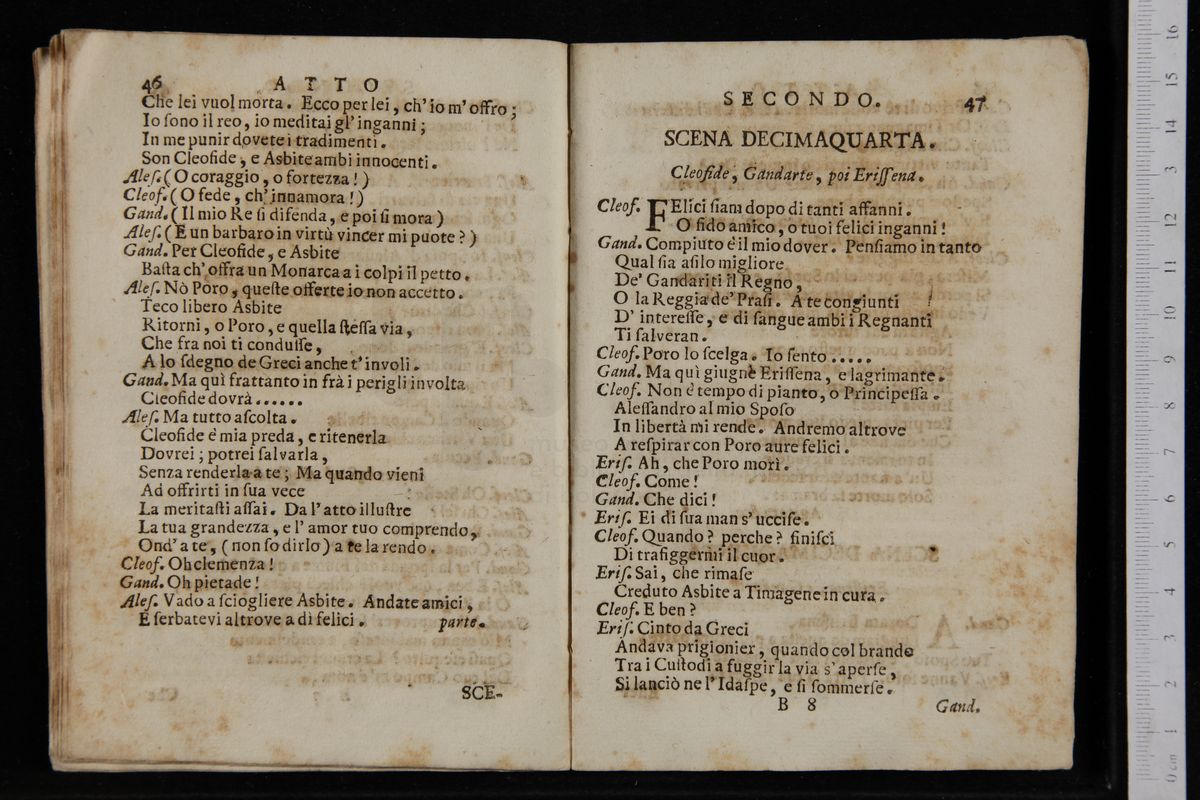 46 ATTO
Che lei vuol morta. Ecco per lei, ch' io m' offro;
Io ſono il reo, io meditai gl' inganni;
In me punir dovete i tradimenti.
Son Cleofide, e Asbite ambi innocenti.
Aleſ. ( O coraggio, o fortezza! )
Cleof. ( O fede, ch' innamora! )
Gand. ( Il mio Re ſi difenda, e poi ſi mora )
Aleſ. ( E un barbaro in virtù vincer mi puote? )
Gand. Per Cleofide, e Asbite
Baſta ch' offra un Monarca a i colpi il petto.
Aleſ. Nò Poro, queſte offerte io non accetto.
Teco libero Asbite
Ritorni, o Poro, e quella ſteſſa via,
Che fra noi ti conduſſe,
A lo ſdegno de Greci anche t' involi.
Gand. Ma quì frattanto in frà i perigli involta
Cleofide dovrà......
Aleſ. Ma tutto aſcolta.
Cleofide é mia preda, e ritenerla
Dovrei; potrei ſalvarla,
Senza renderla a te; Ma quando vieni
Ad offrirti in ſua vece
La meritaſti aſſai. Da l' atto illuſtre
La tua grandezza, e l' amor tuo comprendo,
Ond' a te, ( non ſo dirlo ) a te la rendo.
Cleof. Oh clemenza!
Gand. Oh pietade!
Aleſ. Vado a ſciogliere Asbite. Andate amici,
E ſerbatevi altrove a dì felici. parte.
SCE-
SECONDO. 47
SCENA DECIMAQUARTA.
Cleofide, Gandarte, poi Eriſſena.
Cleof. FElici ſiam dopo di tanti affanni.
O fido amico, o tuoi felici inganni!
Gand. Compiuto é il mio dover. Penſiamo in tanto
Qual ſia aſilo migliore
De' Gandariti il Regno,
O la Reggia de' Praſi. A te congiunti
D' intereſſe, e di ſangue ambi i Regnanti
Ti ſalveran.
Cleof. Poro lo ſcelga. Io ſento.....
Gand. Ma quì giugne Eriſſena, e lagrimante.
Cleof. Non é tempo di pianto, o Principeſſa.
Aleſſandro al mio Spoſo
In libertà mi rende. Andremo altrove
A reſpirar con Poro aure felici.
Eriſ. Ah, che Poro morì.
Cleof. Come!
Gand. Che dici!
Eriſ. Ei di ſua man s' ucciſe.
Cleof. Quando? perche? finiſci
Di trafiggermi il cuor.
Eriſ. Sai, che rimaſe
Creduto Asbite a Timagene in cura.
Cleof. E ben?
Eriſ. Cinto da Greci
Andava prigionier, quando col brando
Tra i Cuſtodi a fuggir la via s' aperſe,
Si lanciò ne l' Idaſpe, e ſi ſommerſe.
B 8 Gand.